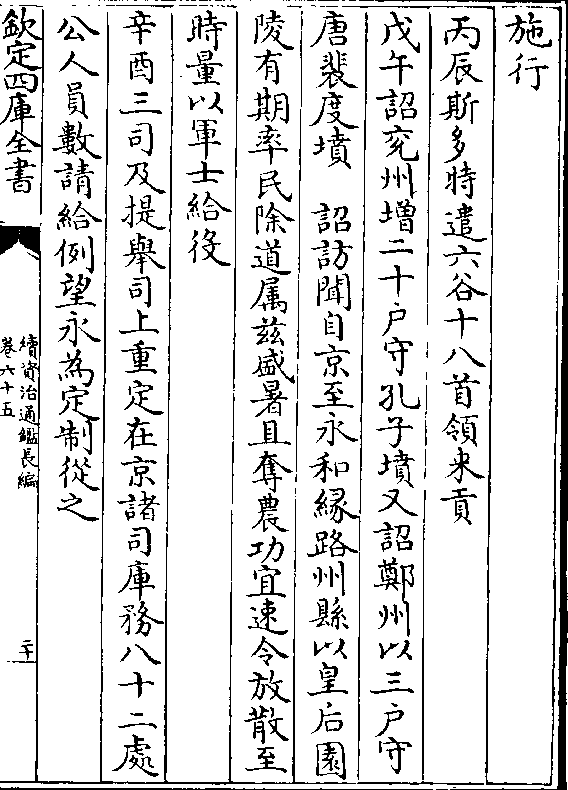 施行
丙辰斯多時遣六谷十八首領来貢
戊午詔兖州增二十户守孔子墳又詔鄭州以三户守
唐裴度墳　詔訪聞自京至永和緣路州縣以皇后園
陵有期率民除道属兹盛暑且奪農功宜速令放散至
時量以軍士給役
辛酉三司及提舉司上重定在京諸司庫務八十二處
公人員數請給例望永為定制從之
欽定四庫全書
續資治通鑑長編
卷六十五
二十